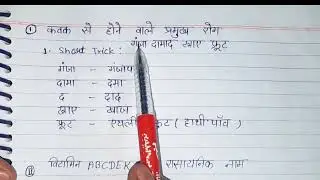 ① कवक से होने वाले प्रमुख रोग
1. Short Trick: गंजा दामाद खाए फ्रूट
गंजा - गंजापन
दामा - दमा
द - दाद
खाए - खाज
फ्रूट - एथलीट फुट (हाथी पाँव)
② विटामिन ABCDEK रासायनिक नाम